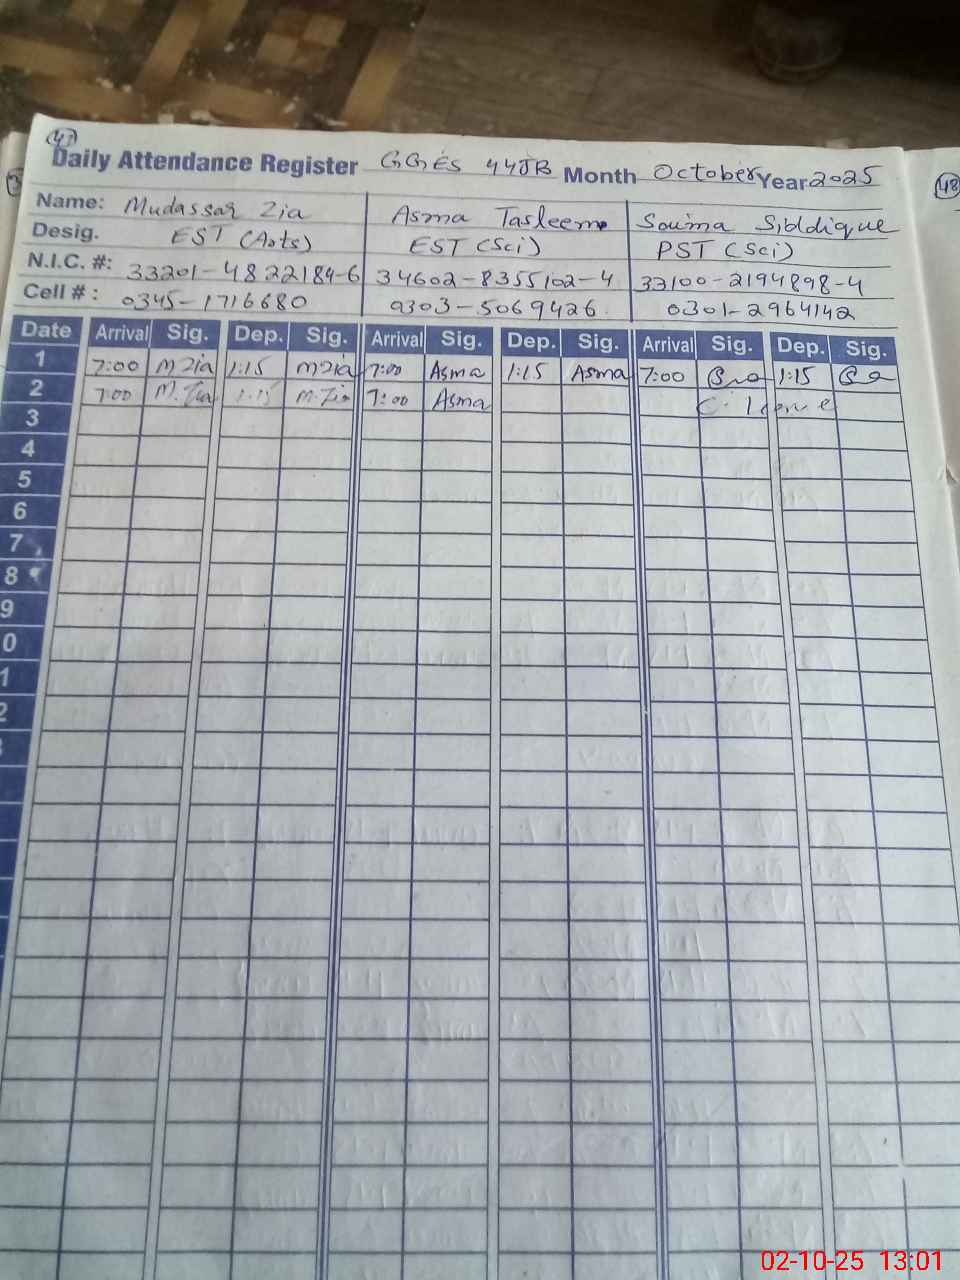 47
Daily Attendance Register GGES 44JB Month October Year 2025
48
Name: Mudassar Zia Asma Tasleem Saima Siddique
Desig. EST (Arts) EST (Sci) PST (Sci)
N.I.C. #: 33201-4822184-6 34602-8355102-4 33100-2194898-4
Cell #: 0345-1716680 0303-5069426 0301-2964142
Date Arrival Sig. Dep. Sig. Arrival Sig. Dep. Sig. Arrival Sig. Dep. Sig.
1 7:00 MZia 1:15 MZia 7:00 Asma 1:15 Asma 7:00 1:15
2 7:00 M.Zia 1:15 M.Zia 7:00 Asma C. Leave
3
4
5
6
7
8
9
0
1
2
02-10-25 13:01